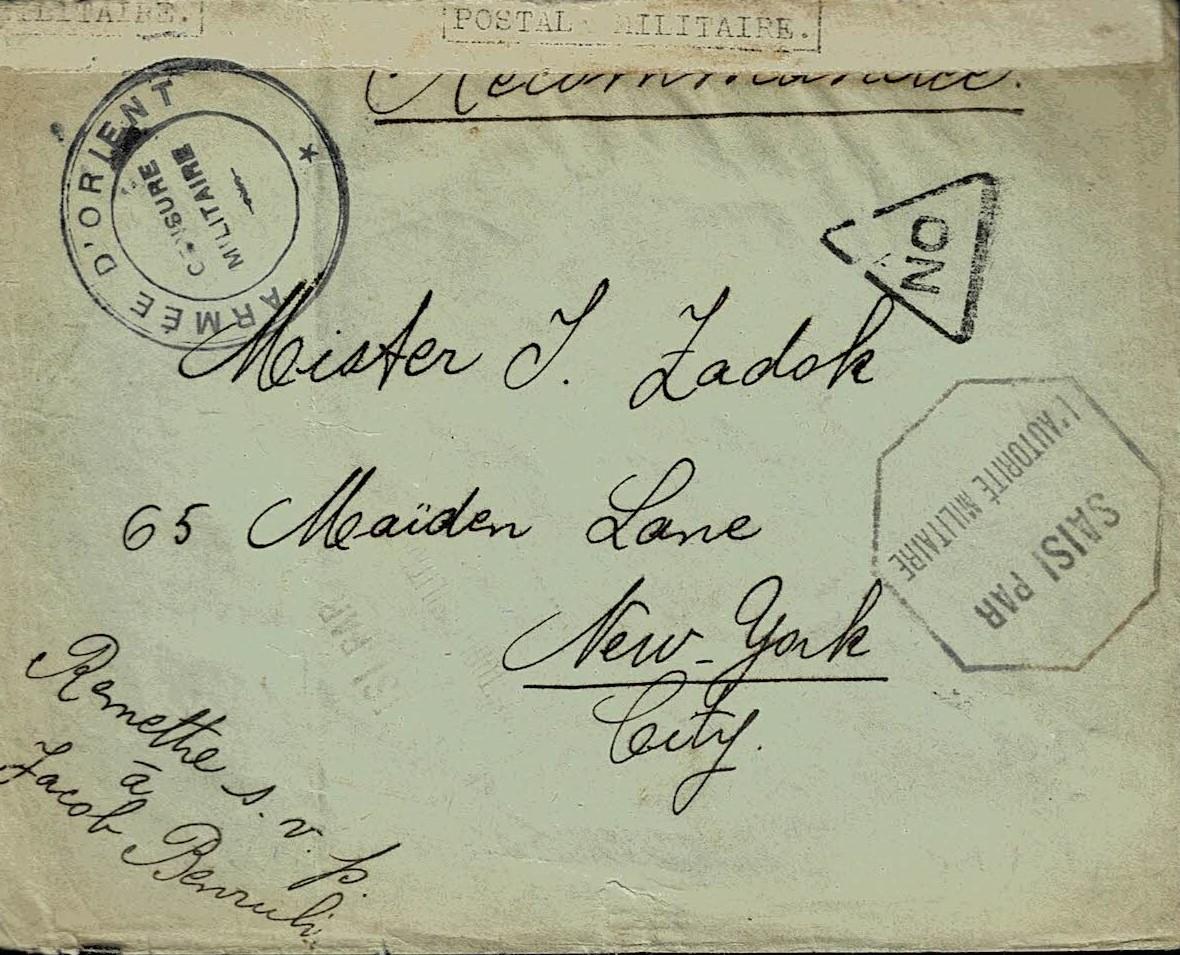 MILITAIRE.
POSTAL MILITAIRE.
Recommandée.
ARMÉE D'ORIENT
CENSURE
MILITAIRE
NON
Mister J. Zadok
65 Maïden Lane
New-York
City.
SAISI PAR
L'AUTORITÉ MILITAIRE
SI PAR
Remethe s. v. p.
à
Jacob Benrubi